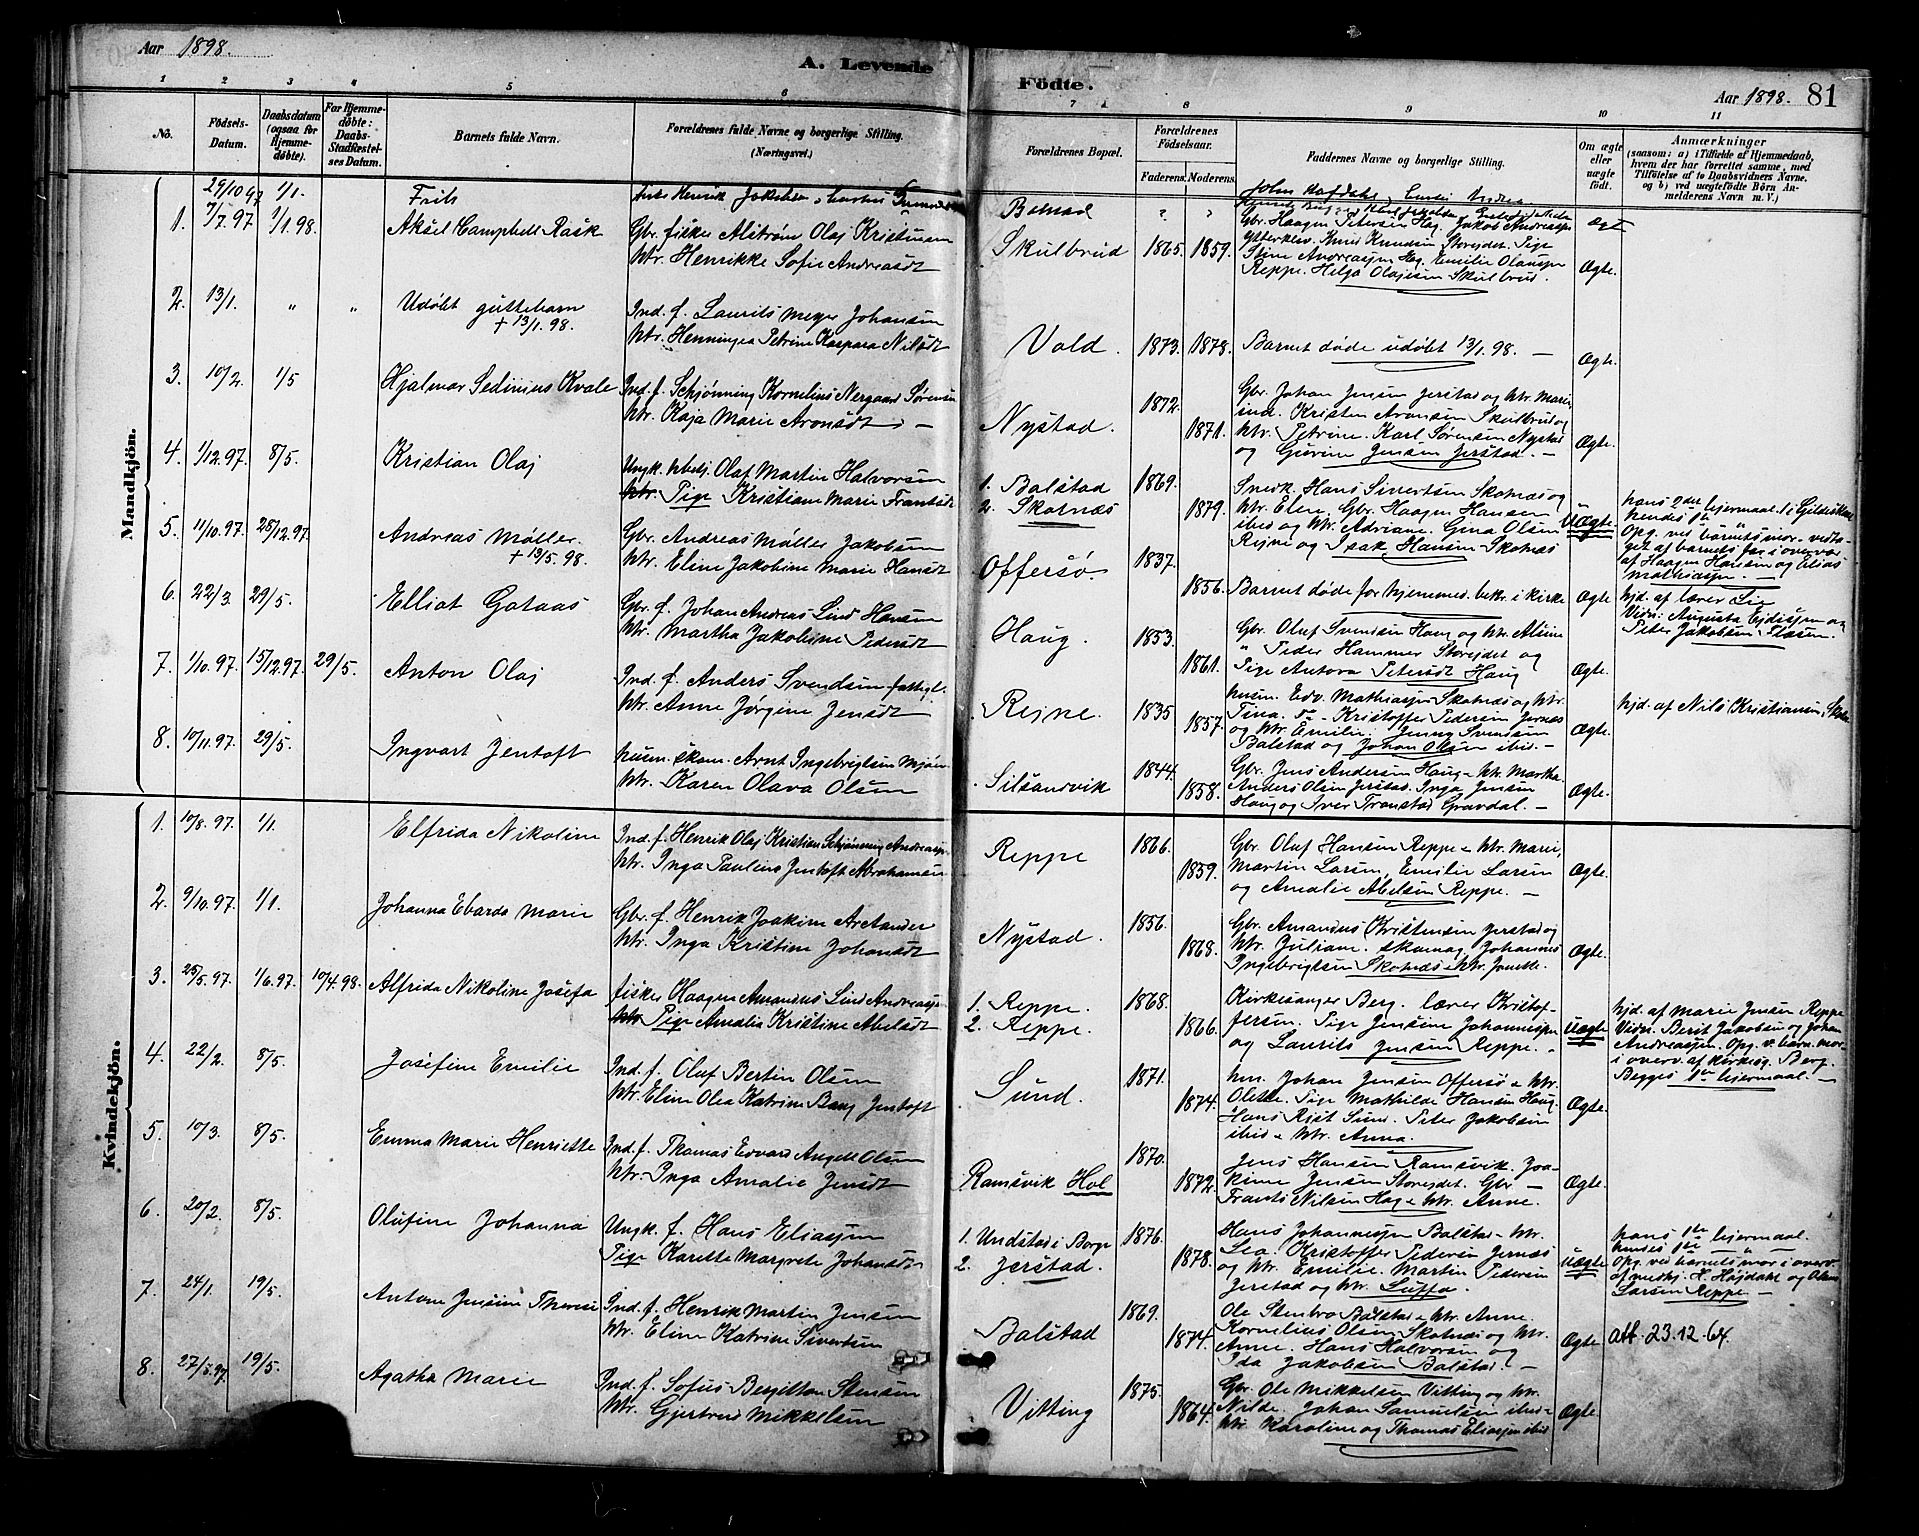 Aar 1898.
A. Levende
Födte.
Aar 1898. 81
1 2 3 4 5 6 7 8 9 10 11
No.
Födsels-Datum.
Daabsdatum (ogsaa for Hjemme-döbte).
For Hjemme-döbte: Daabs-Stadfæstel-ses Datum.
Barnets fulde Navn.
Forældrenes fulde Navne og borgerlige Stilling. (Næringsvei.)
Forældrenes Bopæl.
Forældrenes Födselsaar.
Faderens. Moderens.
Faddernes Navne og borgerlige Stilling.
Om ægte eller uægte födt.
Anmærkninger
(saasom: a) i Tilfælde af Hjemmedaab, hvem der har forrettet samme, med Tilföielse af to Daabsvidners Navne. og b) ved uægtefödte Börn An-melderens Navn m. V.)
Mandkjön.
29/10 97 1/1. Frits
Balstad ? ?
1. 7/7. 97 1/1. 98. Aksel Campbell Rask
Gbr. fisker Alström Olaj Kristiansen
Htr. Henrikke Sofie Andreasdt
Skulbrud 1865. 1859.
Gbr. Haagen Petersen Hag. Jakob Andreassen
Ytterklev. Knud Knudsen Storeidet. Pige
Stine Andreassen Hag. Emilie Olaussen
Reppe. Helga Olajsen Skulbrud.
Ægte.
2. 13/1. " " Udöbt guttebarn
+ 13/1. 98.
Ind. f. Laurits Meyer Johansen
Htr. Henningea Petrine Kaspara Nilsdt
Vold. 1873. 1878.
Barnet döde udöbt 13/1. 98. —
Ægte.
3. 10/2. 1/5 Hjalmar Sedinius Kvale
Ind. f. Schjönning Kornelius Nergaard Sörensen
Htr. Kaja Marie Aronsdt. —
Nystad. 1872. 1871.
Gbr. Johan Jensen Jerstad og Htr. Marie,
ind. Kristen Aronsen Skulbrud og
Htr. Petrine. Karl Sörensen Nystad
og Gurine Jensen Jerstad. —
Ægte.
4. 1/12. 97. 8/5. Kristian Olaj
Ungk. Olaf Martin Halvorsen
Pige Kristiane Marie Frantsdt
1. Balstad
2. Skotnæs
1869. 1879.
Snedk. Hans Sivertsen Skotnæs og
Htr. Elen. Gbr. Haagen Hansen
ibid og Htr. Adriane. Gina Olsen
Rejne og Isak Hansen Skotnæs
Uægte.
hans 2det lejermaal i Gildeskaal
hendes 1te
Opg. ved barnets mor. vedta-
get af barnets far i overvær
af Haagen Hansen og Elias
Mathiassen. —
5. 11/10. 97. 28/12. 97. Andreas Möller.
+ 13/5. 98.
Gbr. Andreas Möller Jakobsen
Htr. Eline Jakobine Marie Hansdt
Offersö. 1837. 1856.
Barnet döde för hjemmed. bekr. i kirke
Ægte
hjd. af lærer Lie
Vidn: Augusta Ejdissen og
Peter Jakobsen
6. 22/3. 29/5. Elliot Gotaas
Gbr. f. Johan Andreas Lind Hansen
Htr. Martha Jakobine Pedersdt
Haug. 1853. 1861.
Gbr. Oluf Svendsen Haug og Htr. Aline
" Peder Hammer Storejdet og
Pige Antora Petersdt Haug
Ægte.
7. 1/10. 97. 15/12. 97. 29/5. Anton Olaj
Ind. f. Anders Svendsen fattigl.
Htr. Anne Jörgine Jensdt
Rejne. 1835 1857.
Husm. Edv. Mathiassen Skotnæs og Htr.
Tina. do - Kristoffer Pedersen Jernæs
og Htr. Emilie. Jenny Svendsen
Balstad og Johan Olsen ibid. —
Ægte.
hjd. af Nils Kristiansen,
8. 10/11. 97. 29/5. Ingvart Jentoft
Husm. skom. Arnt Ingebrigtsen
Htr. Karen Olava Olsen
Silsandvik 1844. 1858.
Gbr. Jens Andersen Haug - Htr. Martha.
Anders Olsen Jerstad. Inga Jensen
Haug og Iver Transtad Gravdal. —
Ægte.
Kvindekjön.
1. 10/8. 97. 1/1. Elfrida Nikoline
Ind. f. Henrik Olaj Kristian Schjönning Andreassen
Htr. Inga Pauline Jentoft Abrahamsen
Reppe 1866. 1859.
Gbr. Oluf Hansen Reppe - Htr. Marie,
Martin Larsen, Emilie Larsen
og Amalie Abelsen Reppe. —
Ægte.
2. 9/10. 97. 1/1. Johanna Ebarda Marie
Gbr. f. Henrik Joakim Arctander
Htr. Inga Kristine Johansdt
Nystad. 1856. 1868.
Gbr. Amandus Kristensen Jerstad og
Htr. Juliane. Skomag. Johannes
Ingebrigtsen Skotnæs - Htr. Jonette.
Ægte.
3. 25/5. 97. 1/6. 97. 10/4. 98. Alfrida Nikoline Josefa
fisker Haagen Amandus Lind Andreassen
Pige Amalia Kristine Abelsdt
1. Reppe.
2. Reppe.
1868. 1866.
Kirkesanger Berg. lærer Kristof-
fersen. Pige Jensine Johannessen
og Laurits Jensen Reppe. -
Uægte
hjd. af Marie Jensen Reppe
Vidn. Berit Jakobsen og Johan
Andreassen. Opg. v. barn. mor
i overv. af kirkesg. Berg.
Begges 1te lejermaal. —
4. 22/2. 8/5. Josefine Emilie
Ind. f. Oluf Bertin Olsen
Htr. Eline Olea Katrine Bang Jentoft
Sund. 1871. 1874.
hm. Johan Jensen Offersö - Htr.
Olette. Pige Mathilde Hansen Haug.
Hans Rist Sund. Peter Jakobsen
ibid - Htr. Anna.
Ægte.
5. 10/3. 8/5. Emma Marie Henriette
Ind. f. Thomas Edvard Angell Olsen
Htr. Inga Amalie Jensdt
Ramsvik Hol 1870. 1872.
Jens Hansen Ramsvik. Joa-
kime Jensen Storejdet. Gbr —
Frants Nilsen Hag - Htr. Anne.
Ægte.
6. 20/2. 8/5. Olufine Johanna
Ungk. f. Hans Eliassen
Pige Karette Margrete Johansdt
1. Undstad i Borge
2. Jerstad.
1876. 1878.
Hans Johannessen Balstad - Htr.
Lea. Kristoffer Pedersen Jernæs
og Htr. Emilie. Martin Pedersen
Jerstad og Htr. Luffa.
Uægte
hans 1te lejermaal.
hendes 1te — " —
Opg. ved barnets mor i overv.
af medhj. H. Höjdahl og
Larsen Reppe. —
7. 24/1. 19/5. Antone Jensine Therese
Ind. f. Henrik Martin Jensen
Htr. Eline Katrine Sivertsen
Balstad 1869. 1874.
Ole Stenbro Balstad - Htr. Anne
Kornelius Olsen Skotnæs og Htr.
Anne. Hans Halvorsen og
Ida Jakobsen Balstad. —
Ægte
att. 23.12.64.
8. 27/5. 97. 19/5. Agatha Marie
Ind. f. Sofus Bergitton Stensen
Htr. Gjertrud Mikkelsen
Vitting 1875. 1864.
Gbr. Ole Mikkelsen Vitting og Htr.
Nilde. Johan Samuelsen ibid -
Htr Karoline og Thomas Eliassen ibid
Ægte.